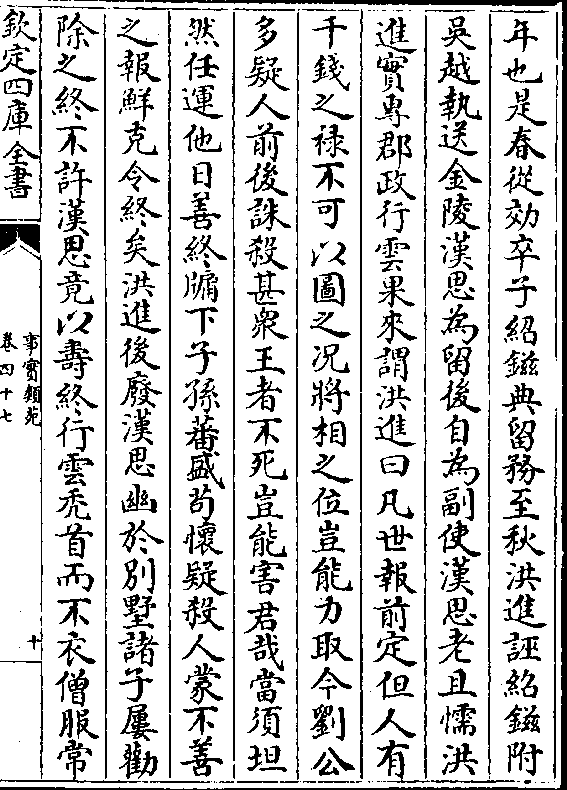 年也是春從効卒子紹鎡典留務至秋洪進誣紹鎡附
吳越執送金陵漢思為留後自為副使漢思老且懦洪
進實專郡政行雲果來謂洪進曰凡世報前定但人有
千錢之禄不可以圖之况將相之位豈能力取今劉公
多疑人前後誅殺甚衆王者不死豈能害君哉當須坦
然任運他日善終牖下子孫蕃盛茍懷疑殺人蒙不善
之報鮮克令終矣洪進後廢漢思幽於別墅諸子屢勸
除之終不許漢思竟以壽終行雲禿首而不衣僧服常
欽定四庫全書
事實類苑
卷四十七
十